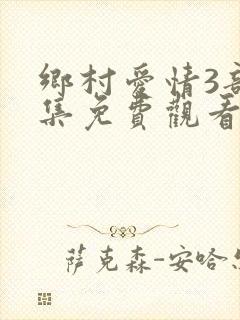 鄉村愛情3
集免費觀看
薩克森-安哈